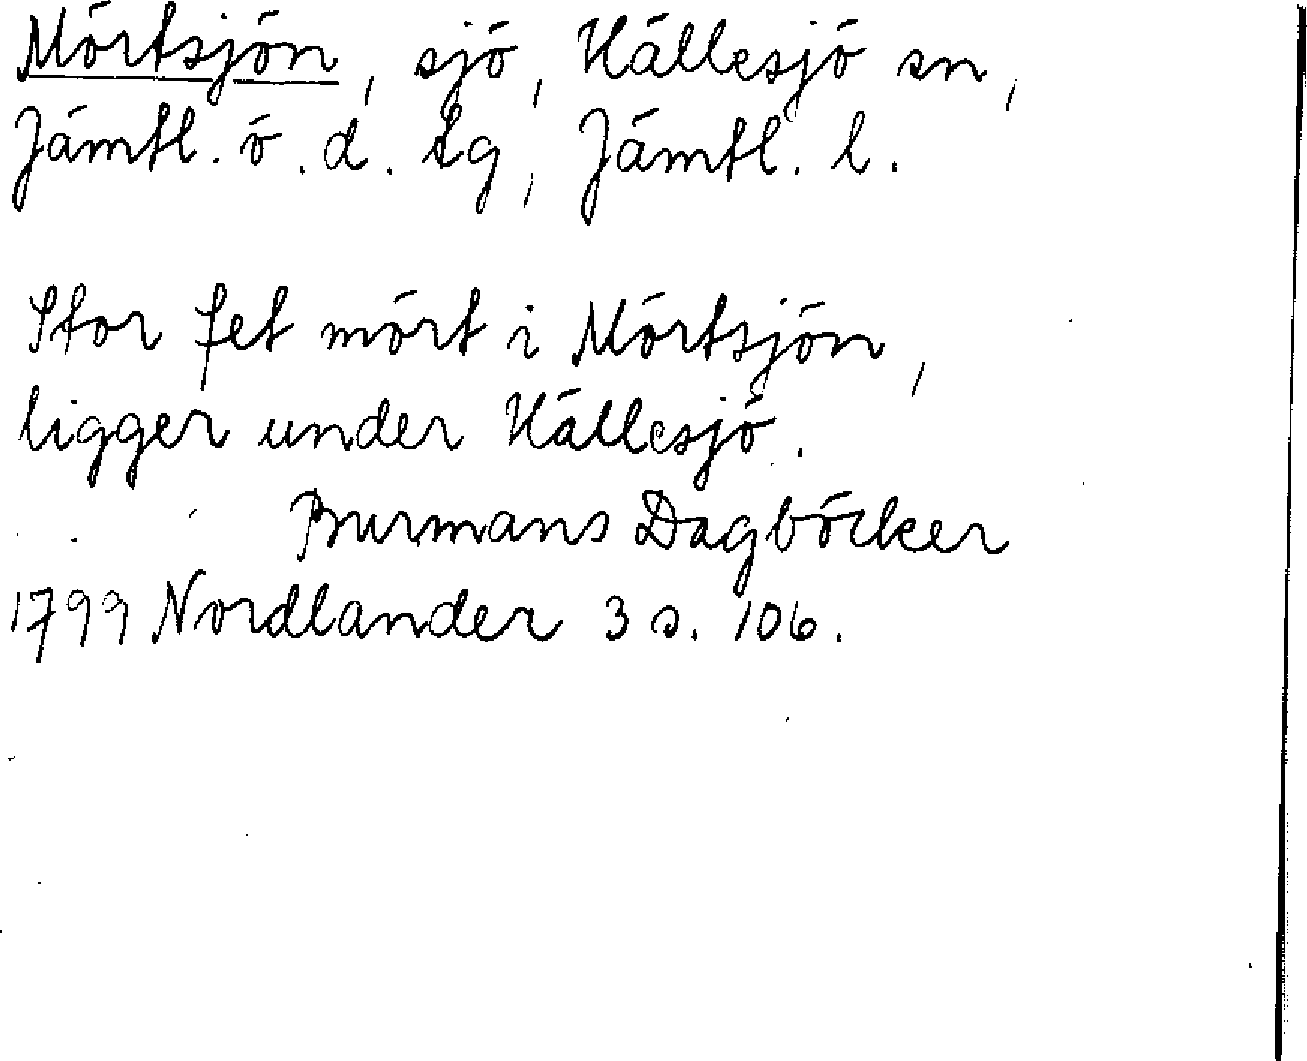 Mörtsjön, sjö, Hällesjö sn,
Jämtl. ö. d. tg, Jämtl. l.
Stor fet mört i Mörtsjön,
ligger under Hällesjö.
Burmans Dagböcker
1799 Nordlander 3 s. 106.